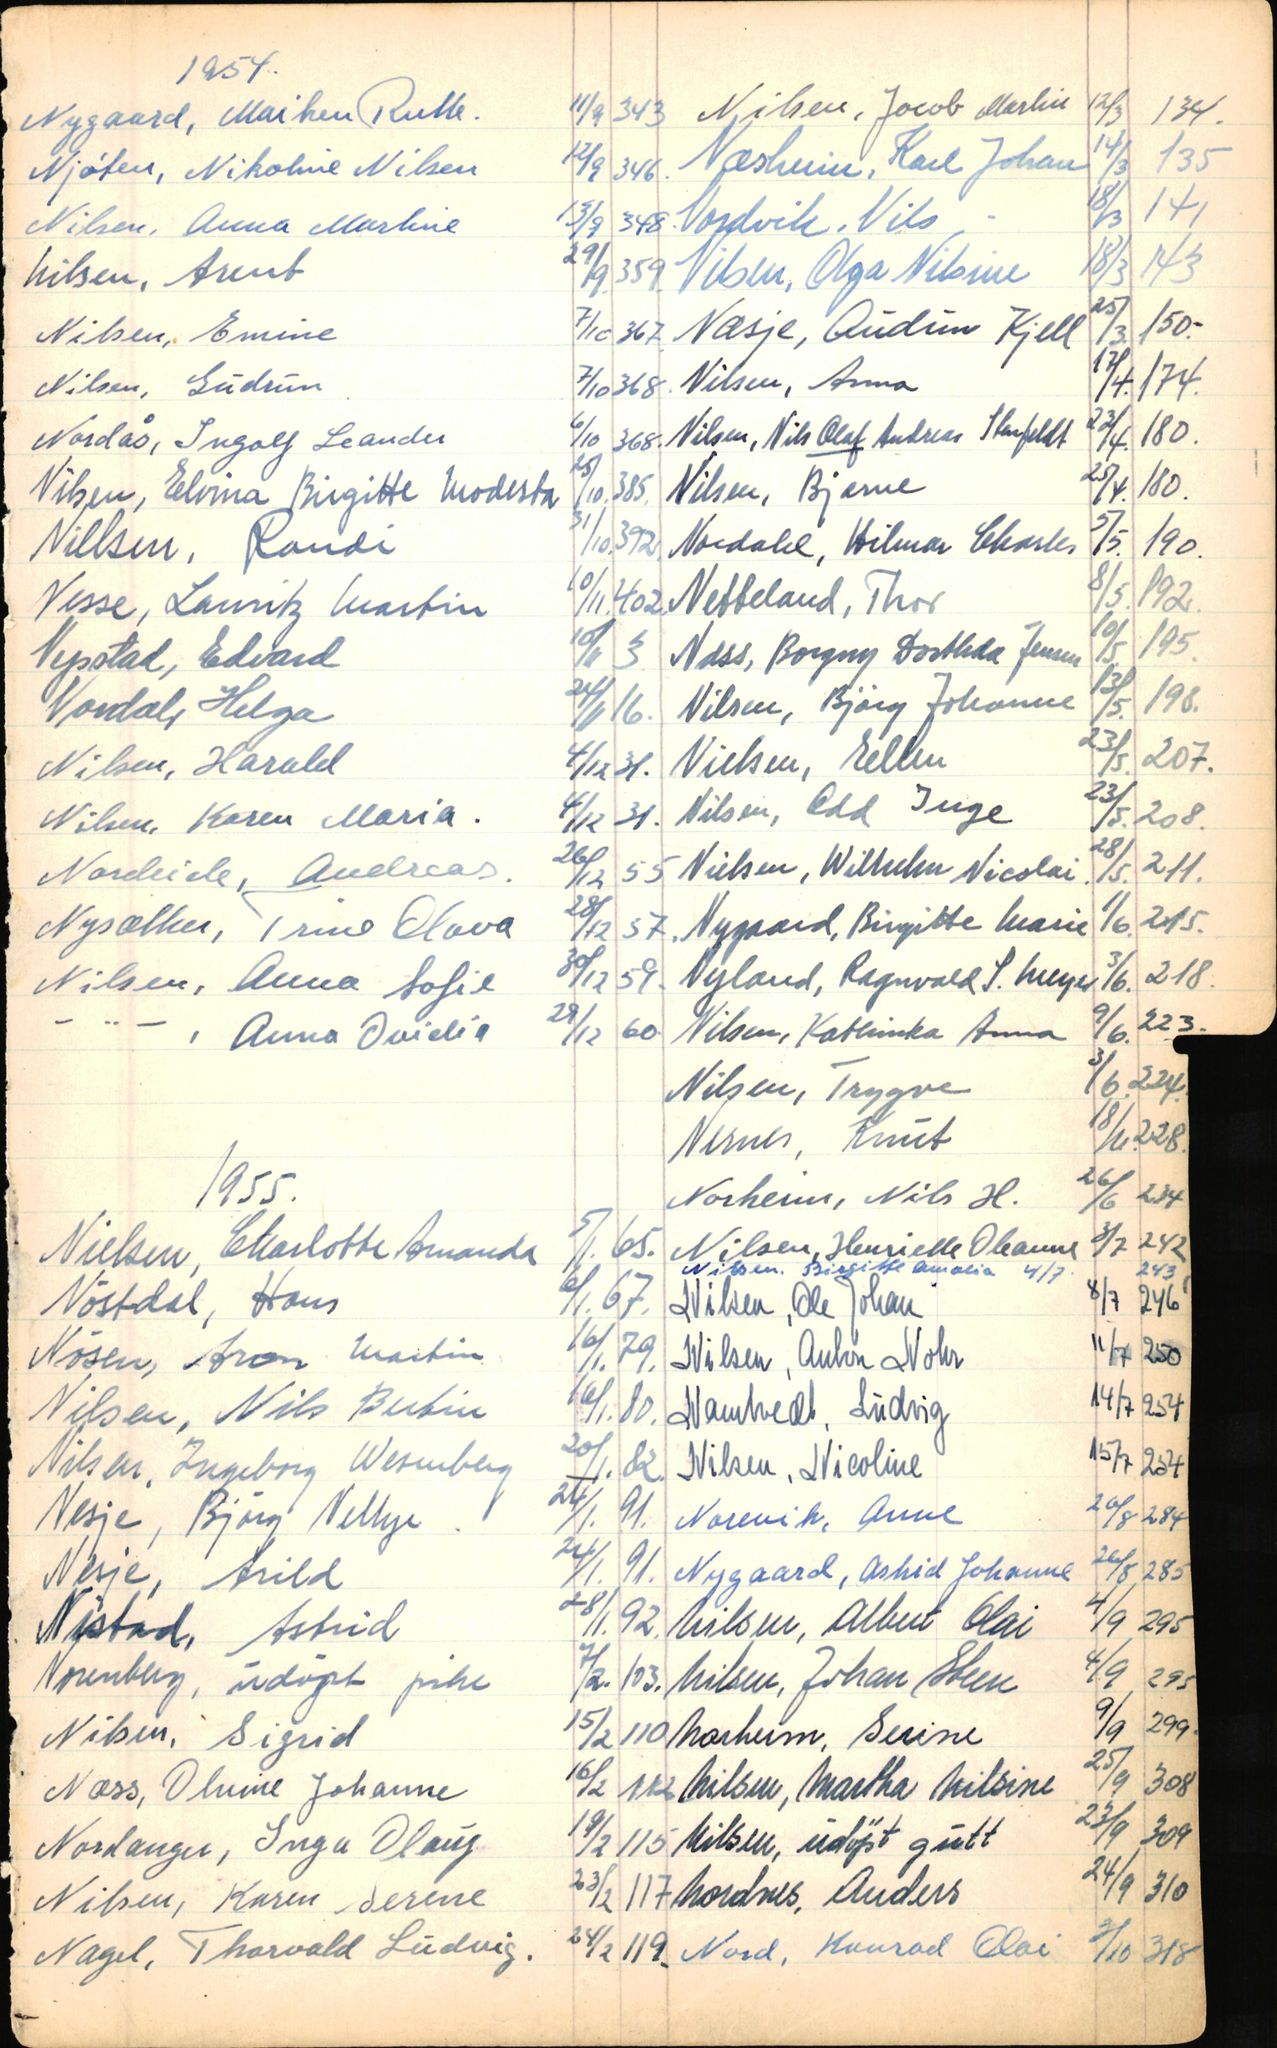 1954.
Nygaard, Maiken Ruth. 11/9 343
Njøten, Nikoline Nilsen 12/9 346.
Nilsen, Anna Martine 13/9 348.
Nilsen, Arent 29/9 359
Nilsen, Emine 7/10 367
Nilsen, Gudrun 7/10 368.
Nordås, Ingolf Leander 6/10 368.
Nilsen, Elvina Birgitte Modesta 25/10 385.
Nillsen, Randi 31/10 392.
Nesse, Lauritz Martin 10/11 402
Nypstad, Edvard 10/11 3
Nordal, Helga 24/11 16.
Nilsen, Harald 4/12 31.
Nilsen, Karen Maria. 4/12 31.
Nordeide, Andreas. 26/12 55
Nysæther, Trine Olava 28/12 57.
Nilsen, Anna Sofie 30/12 59.
- " - , Anna Ovidia 29/12 60
1955.
Nielsen, Charlotte Amanda 5/1. 65.
Nöstdal, Hans 6/1. 67.
Nösen, Aron Martin 16/1. 79.
Nilsen, Nils Bertin 16/1. 80.
Nilsen, Ingeborg Wesenberg 20/1. 82.
Nesje, Björg Nellye 24/1. 91.
Nesje, Arild 24/1. 91.
Nistad, Astrid 28/1. 92.
Norenberg, udöpt pike 7/2. 103.
Nilsen, Sigrid 15/2 110
Næss, Olufine Johanne 16/2 112
Nordanger, Inga Olaug 19/2 115
Nilsen, Karen Serene 23/2 117
Nagel, Thorvald Ludvig. 24/2 119.
Nilsen, Jacob Martin 12/3 134.
Næsheim, Karl Johan 14/3 135
Nordvik, Nils 18/3 141
Nilsen, Olga Nilsine 18/3 143
Næsje, Audun Kjell 25/3 150-
Nilsen, Anna 17/4. 174.
Nilsen, Nils Olaf Andreas Stenfeldt 22/4. 180.
Nilsen, Bjarne 25/4. 180.
Nordahl, Hilmar Charles 5/5. 190.
Nebbeland, Thor 8/5. 192.
Næss, Borgny Dorthea Jensen 10/5 195.
Nilsen, Björg Johanne 13/5. 198.
Nielsen, Ellen 23/5. 207.
Nilsen, Odd Inge 23/5. 208.
Nielsen, Wilhelm Nicolai. 28/5. 211.
Nygaard, Birgitte Marie 1/6. 215.
Nyland, Ragnvald S. Meyer 3/6. 218.
Nilsen, Kathinka Anna 9/6. 223.
Nilsen, Trygve 3/6. 224.
Nernes, Knut 18/6. 228.
Norheim, Nils H. 26/6 234
Nilsen, Henrielle Oleanne 3/7 242
Nilsen, Birgitte Amalia 4/7. 243
Nilsen, Ole Johan 8/7 246
Nilsen, Anton Nohr 11/7 250
Namtvedt, Ludvig 14/7 254
Nilsen, Nicoline 15/7 254
Norevik, Anne 20/8 284
Nygaard, Astrid Johanne 26/8 285
Nilsen, Albert Olai 4/9 295
Nilsen, Johan Steen 4/9 295
Norheim, Serine 9/9 299
Nilsen, Martha Nilsine 25/9 308
Nilsen, udöpt gutt 23/9 309
Nordnes, Anders 24/9 310
Nord, Konrad Olai 3/10 318